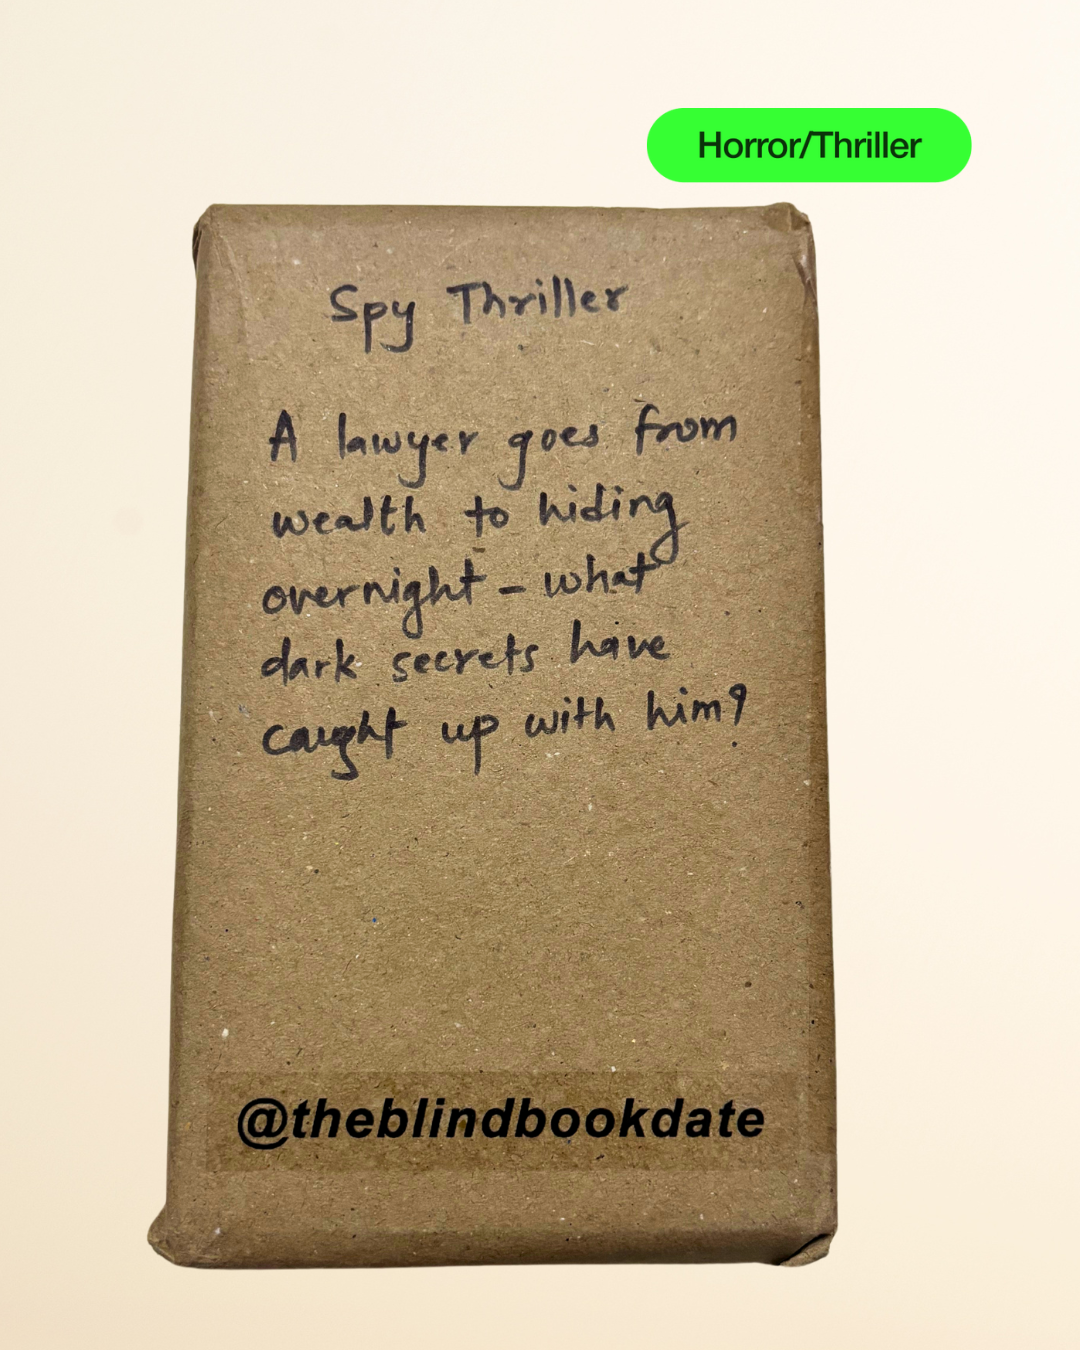 Horror/Thriller
Spy Thriller
A lawyer goes from
wealth to hiding
overnight - what
dark secrets have
caught up with him?
@theblindbookdate